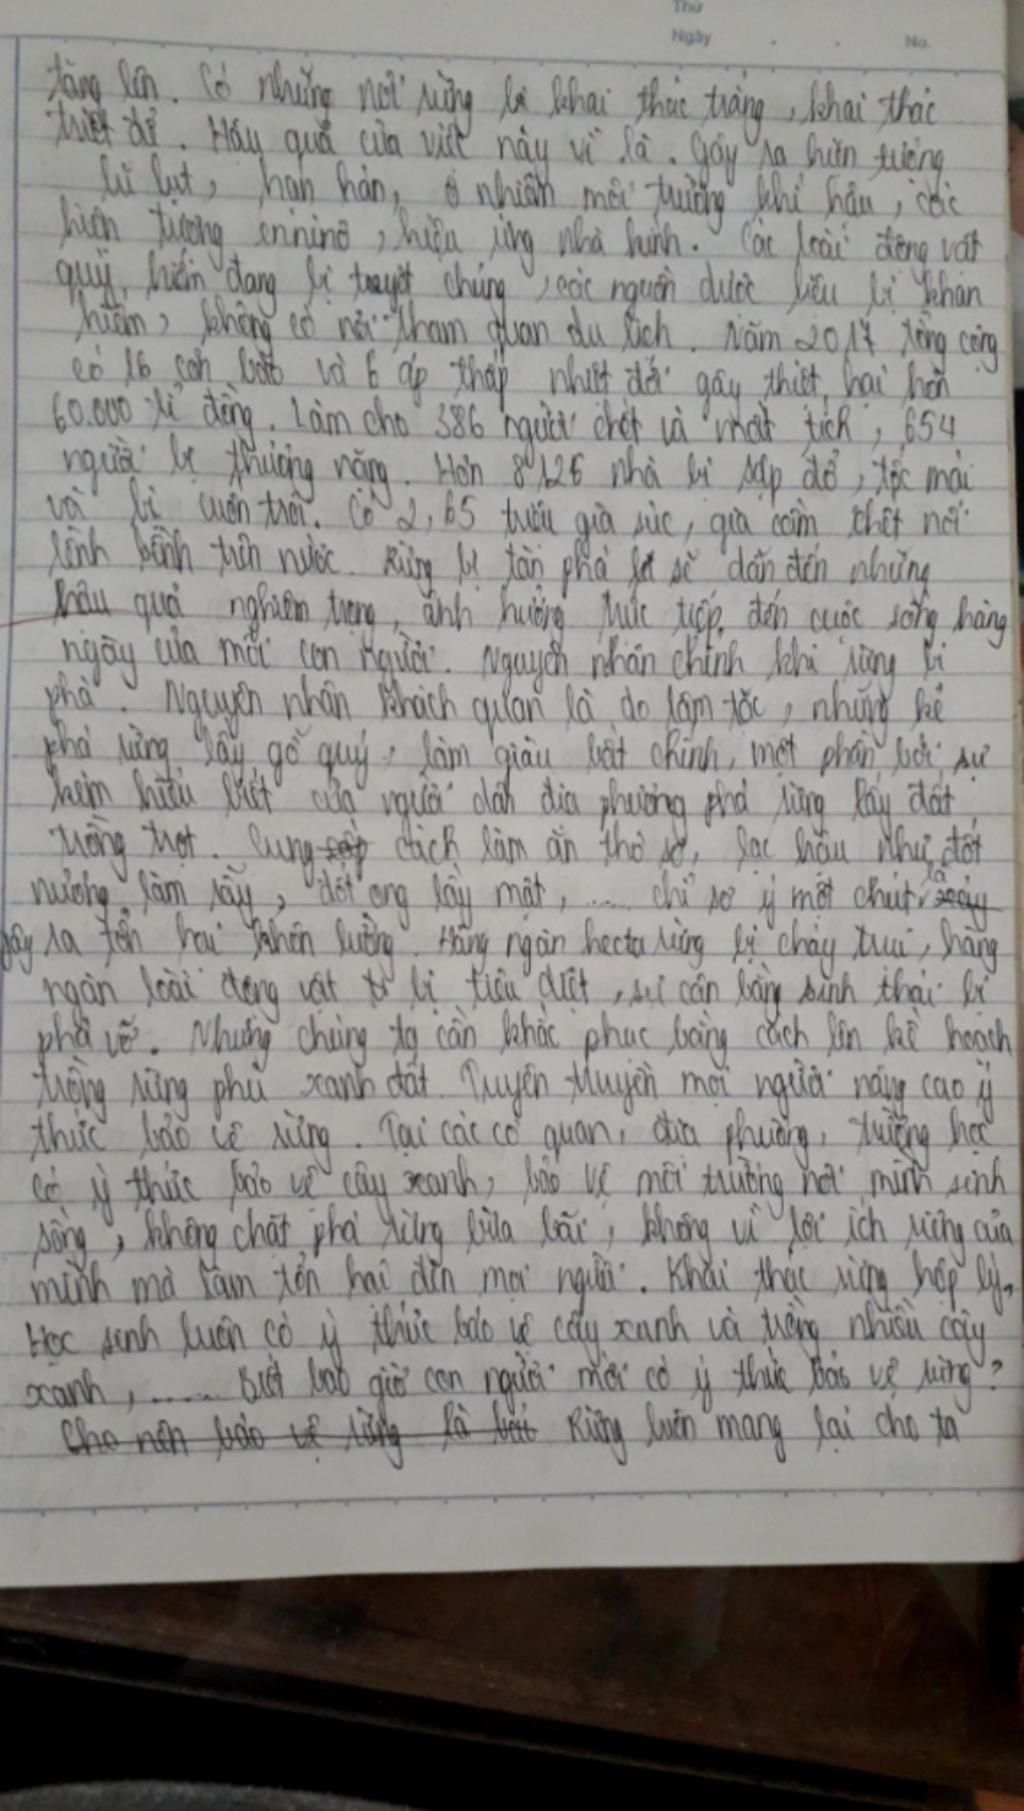 Thứ
Ngày . . No.
tăng lên. Có những nơi rừng bị khai thác trắng, khai thác
triệt để. Hậy quả của việc này vì là. Gây ra hiện tượng
lũ lụt, hạn hán, ô nhiễm môi trường khí hậu, các
hiện tượng enninô, hiệu ứng nhà kính. Các loài động vật
quý, hiếm đang bị tuyệt chủng, các nguồn dược liệu bị khan
hiếm, không có nơi tham quan du lịch. Năm 2017 tổng cộng
có 16 cơn bão và 6 áp thấp nhiệt đới gây thiệt hại hơn
60.000 tỉ đồng. Làm cho 386 người chết và mất tích, 654
người bị thương nặng. Hơn 8126 nhà bị sập đổ, tốc mái
và bị cuốn trôi. Có 2,65 triệu gia súc, gia cầm chết nổi
lềnh bềnh trên nước. Rừng bị tàn phá sẽ dẫn đến những
hậu quả nghiêm trọng, ảnh hưởng trực tiếp đến cuộc sống hàng
ngày của mỗi con người. Nguyên nhân chính khi rừng bị
phá. Nguyên nhân khách quan là do lâm tặc, những kẻ
phá rừng lấy gỗ quý, làm giàu bất chính, một phần bởi sự
kém hiểu biết của người dân địa phương phá rừng lấy đất
trồng trọt. Cung cách làm ăn thô sơ, lạc hậu như đốt
nương làm rẫy, đốt ong lấy mật, ..... chỉ sơ ý một chút là
gây ra tổn hại khôn lường. Hàng ngàn hecta rừng bị cháy trụi, hàng
ngàn loài động vật bị tiêu diệt, sự cân bằng sinh thái bị
phá vỡ. Nhưng chúng ta cần khắc phục bằng cách lên kế hoạch
trồng rừng phủ xanh đất. Tuyên truyền mọi người nâng cao ý
thức bảo vệ rừng. Tại các cơ quan, địa phương, trường học
có ý thức bảo vệ cây xanh, bảo vệ môi trường nơi mình sinh
sống, không chặt phá rừng bừa bãi, không vì lợi ích riêng của
mình mà làm tổn hại đến mọi người. Khai thác rừng hợp lý,
Học sinh luôn có ý thức bảo vệ cây xanh và trồng nhiều cây
xanh, ...... Biết bao giờ con người mới có ý thức bảo vệ rừng?
Cho nên bảo vệ rừng là Rừng luôn mang lại cho ta